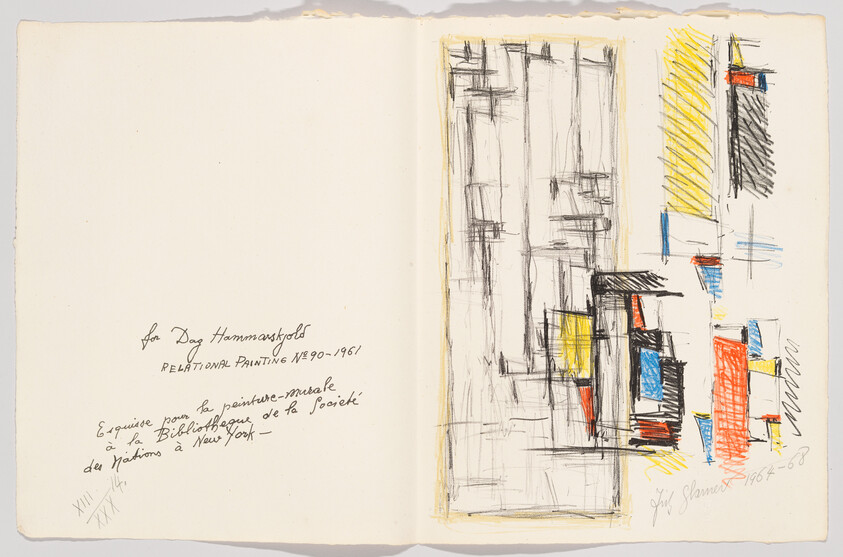 for Dag Hammarskjold
RELATIONAL PAINTING Nº 90-1961
Esquisse pour la peinture-murale
à la Bibliothèque de la Société
des Nations à New York -
XIII 14.
XXX
Fritz Glarner 1964-68